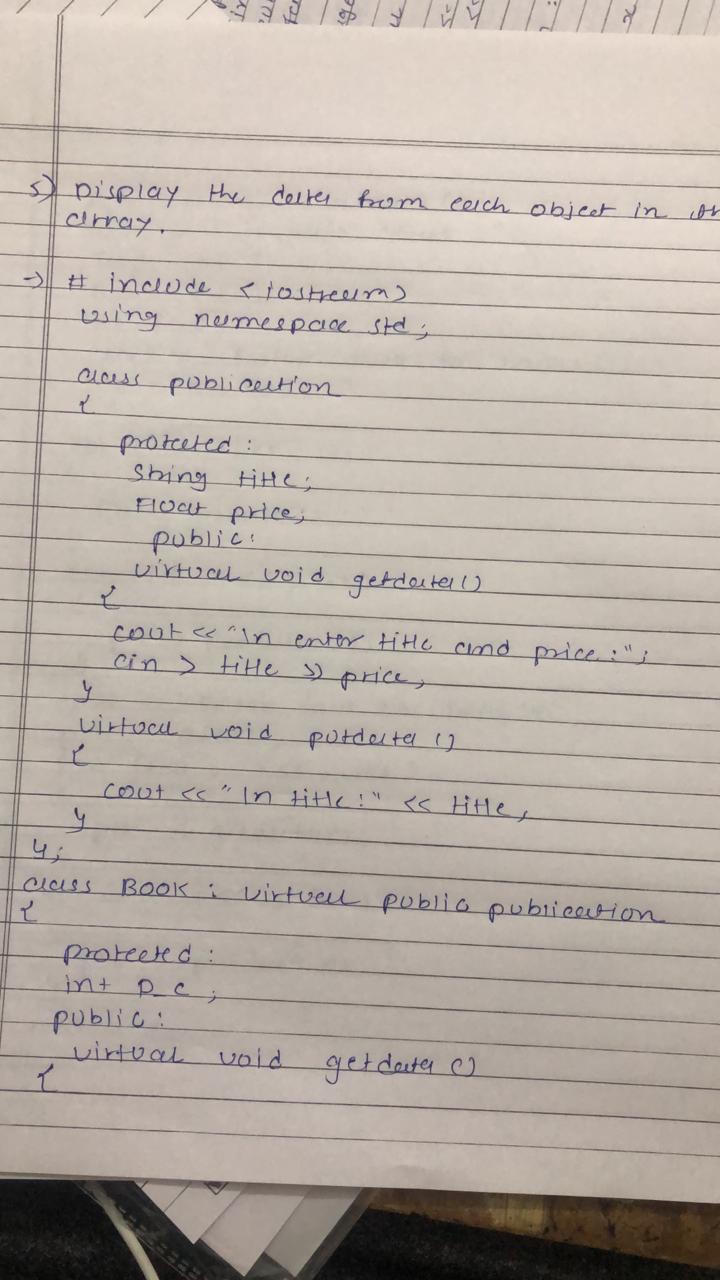 5) Display the data from each object in
array.
→ # include <iostream>
using namespace std;
class publication
{
protected :
String title;
Float price;
public:
virtual void getdata()
{
cout << "\n enter title and price :";
cin > title >> price;
}
virtual void putdata ()
{
cout << "\n title:" << title;
}
};
class BOOK : virtual public publication
{
protected :
int p_c ;
public :
virtual void getdata ()
{